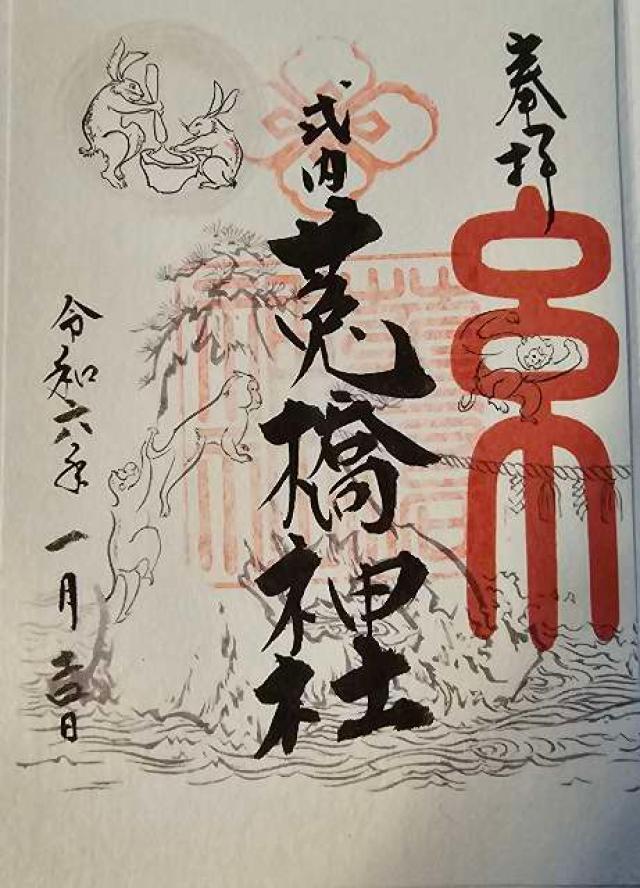 奉拝
式内
莵橋神社
令和六年一月吉日